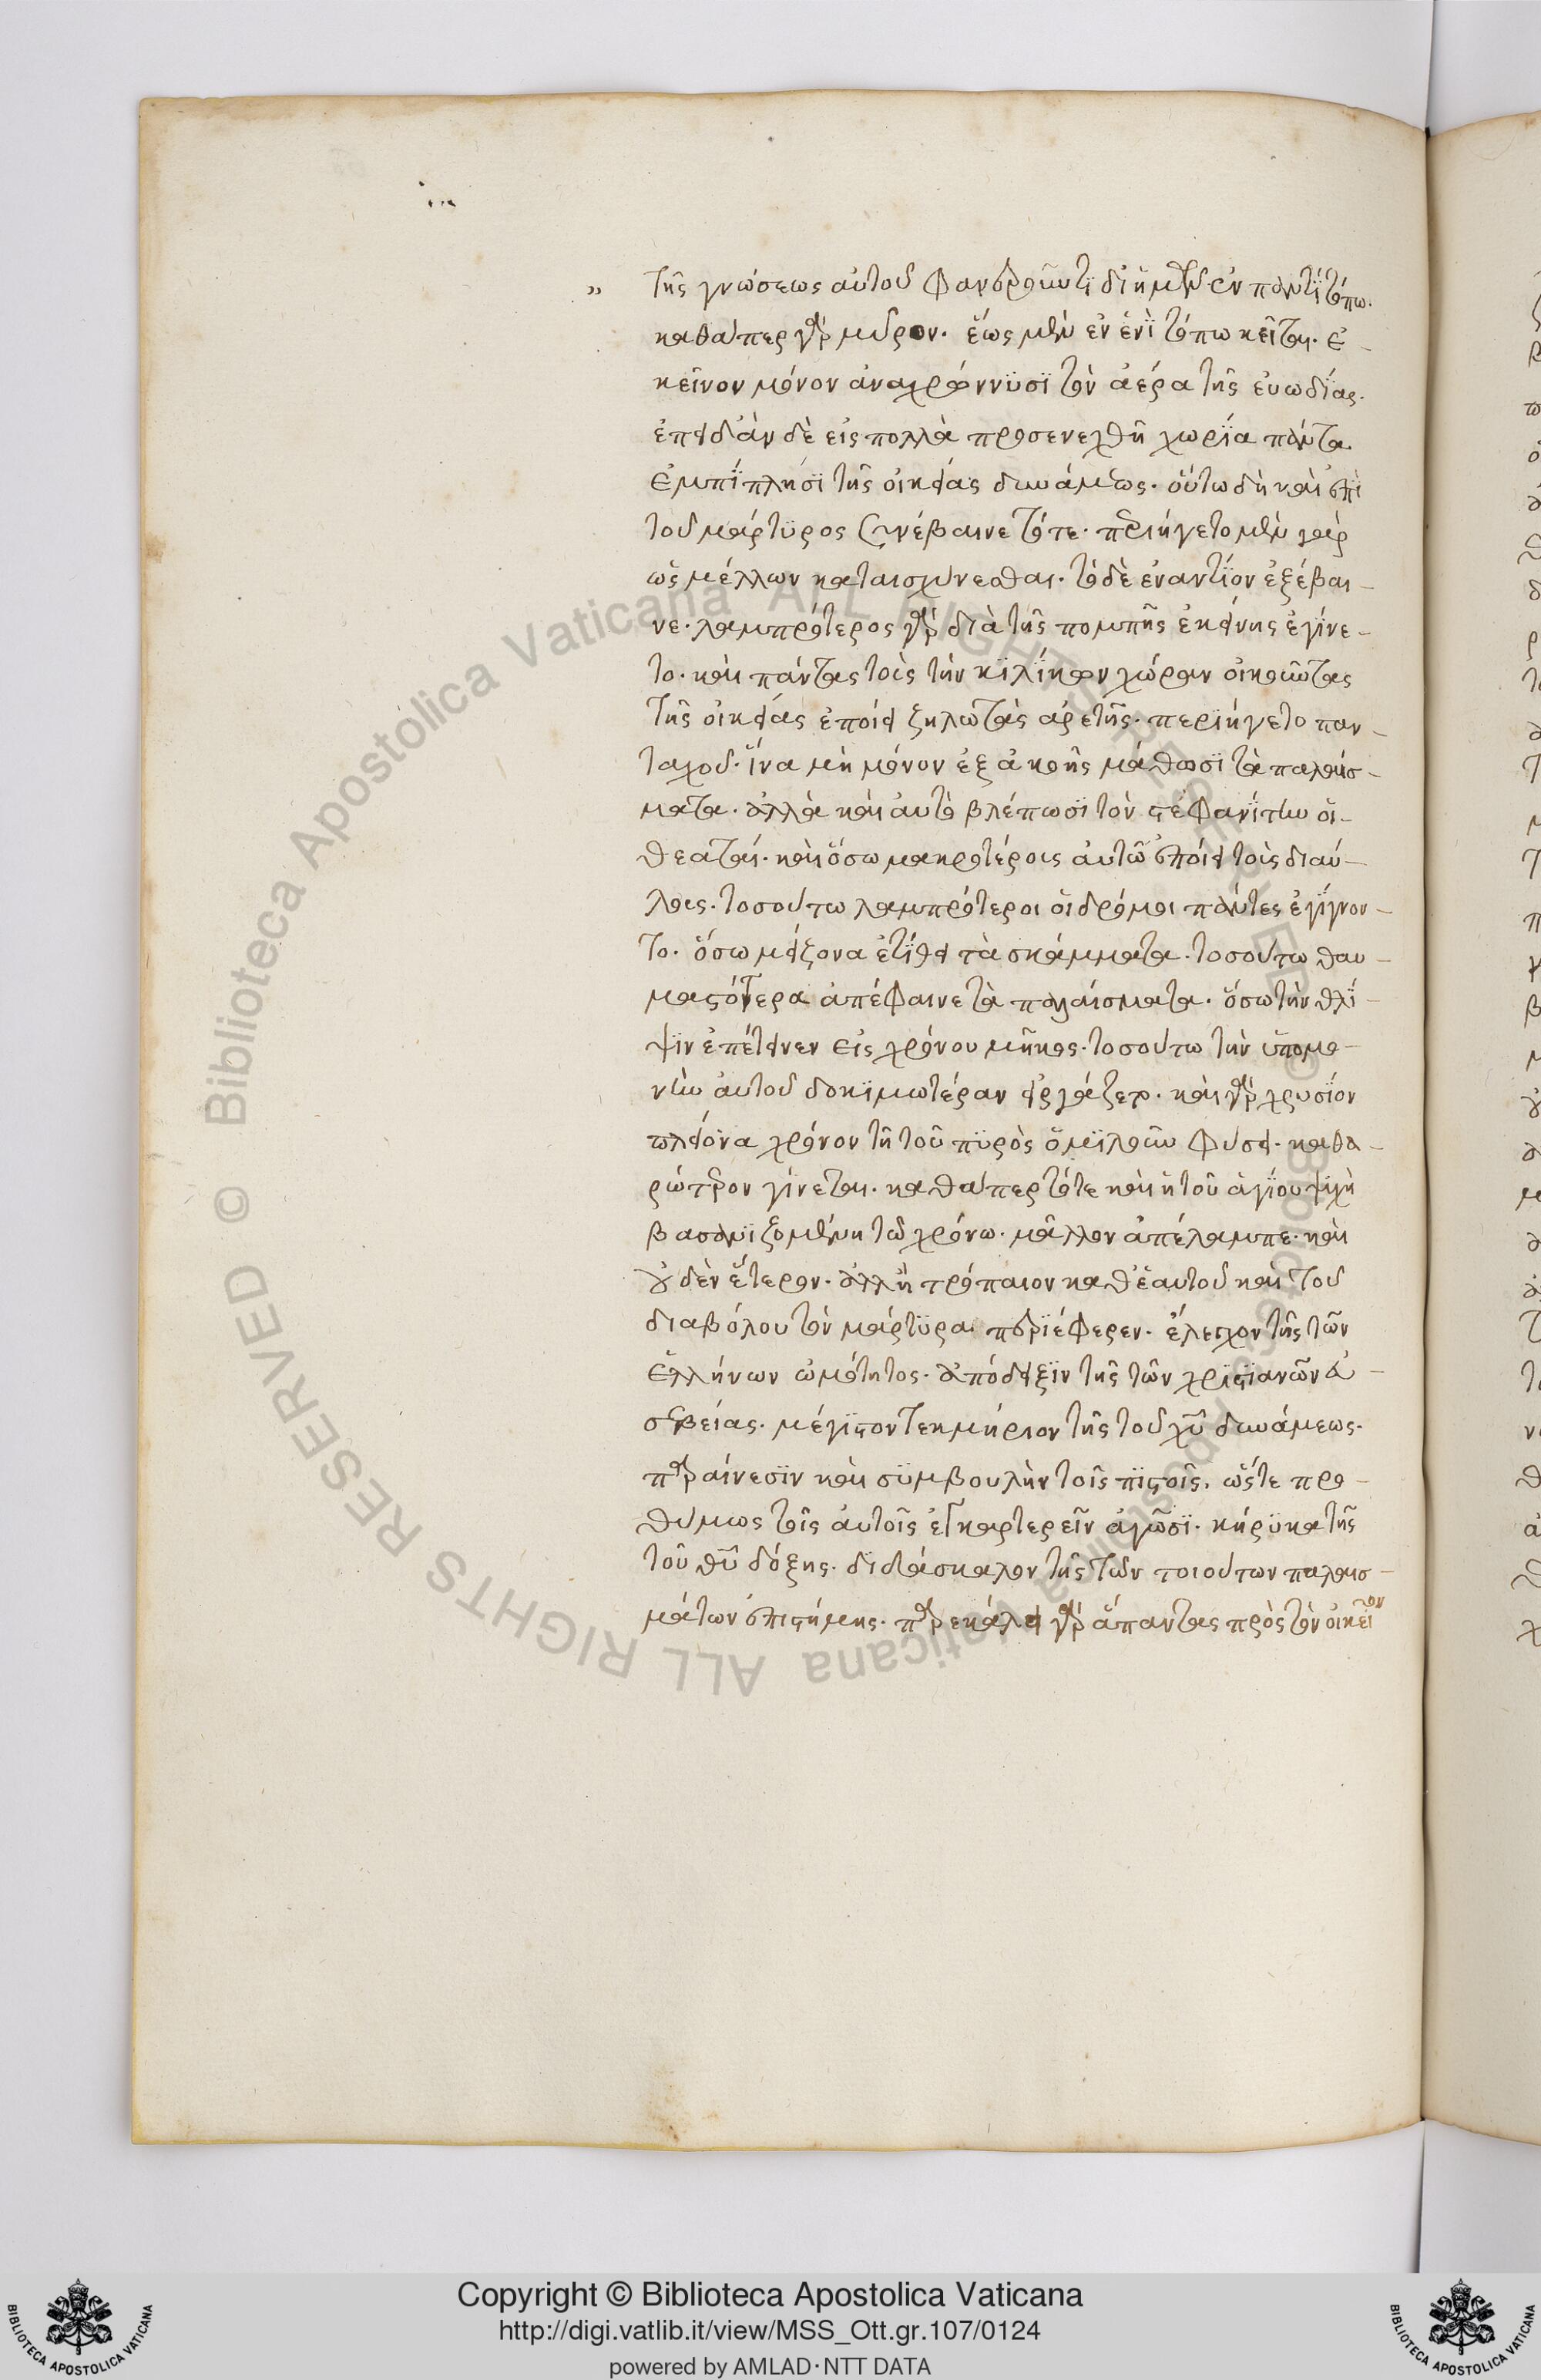 τῆς γνώσεως αὐτοῦ φανεροῦντι δι' ἡμῶν ἐν παντὶ τόπω.
καθάπερ γὰρ μύρον. ἕως μὲν ἐν ἑνὶ τόπω κεῖται. ἐ-
κεῖνον μόνον ἀναχρώννυσι τὸν ἀέρα τῆς εὐωδίας.
ἐπειδὰν δὲ εἰς πολλὰ προσενεχθῆ χωρία πάντα
ἐμπίπλησι τῆς οἰκείας δυνάμεως. οὕτω δὴ καὶ ἐπὶ
τοῦ μάρτυρος συνέβαινε τότε. περιήγετο μὲν γὰρ
ὡς μέλλων καταισχύνεσθαι. τὸ δὲ ἐναντίον ἐξέβαι-
νε. λαμπρότερος γὰρ διὰ τῆς πομπῆς ἐκείνης ἐγίνε-
το. καὶ πάντας τοὺς τὴν κιλίκων χώραν οἰκοῦντας
τῆς οἰκείας ἐποίει ζηλωτὰς ἀρετῆς. περιήγετο παν-
ταχοῦ. ἵνα μὴ μόνον ἐξ ἀκοῆς μάθωσι τὰ παλαίσ-
ματα. ἀλλὰ καὶ αὐτὸ βλέπωσι τὸν στεφανίτην οἱ
θεαταί. καὶ ὅσω μακροτέρους αὐτῶ ἐποίει τοὺς διαύ-
λους. τοσούτω λαμπρότεροι οἱ δρόμοι πάντες ἐγίγνον-
το. ὅσω μείζονα ἐτίθει τὰ σκάμματα. τοσούτω θαυ-
μαστότερα ἀπέφαινε τὰ παλαίσματα. ὅσω τὴν θλί-
ψιν ἐπέτεινεν εἰς χρόνου μῆκος. τοσούτω τὴν ὑπομο-
νὴν αὐτοῦ δοκιμωτέραν εἰργάζετο. καὶ γὰρ χρυσίον
πλείονα χρόνον τῆ τοῦ πυρὸς ὁμιλοῦν φύσει. καθα-
ρώτερον γίνεται. καθάπερ τότε καὶ ἡ τοῦ ἁγίου ψυχὴ
βασανιζομένη τῶ χρόνω. μᾶλλον ἀπέλαμπε. καὶ
οὐδὲν ἕτερον. ἀλλ' ἢ τρόπαιον καθ' ἑαυτοῦ καὶ τοῦ
διαβόλου τὸν μάρτυρα περιέφερεν. ἔλεγχον τῆς τῶν
ἑλλήνων ὠμότητος. ἀπόδειξιν τῆς τῶν χριστιανῶν εὐ-
σεβείας. μέγιστον τεκμήριον τῆς τοῦ χυ δυνάμεως.
παραίνεσιν καὶ συμβουλὴν τοῖς πιστοῖς, ὥστε προ-
θύμως τοῖς αὐτοῖς ἐγκαρτερεῖν ἀγῶσι. κήρυκα τῆς
τοῦ θυ δόξης. διδάσκαλον τῆς τῶν τοιούτων παλαισ-
μάτων ἐπιστήμης. παρεκάλει γὰρ ἅπαντας πρὸς τὸν οἰκεῖον
Copyright © Biblioteca Apostolica Vaticana
http://digi.vatlib.it/view/MSS_Ott.gr.107/0124
powered by AMLAD·NTT DATA